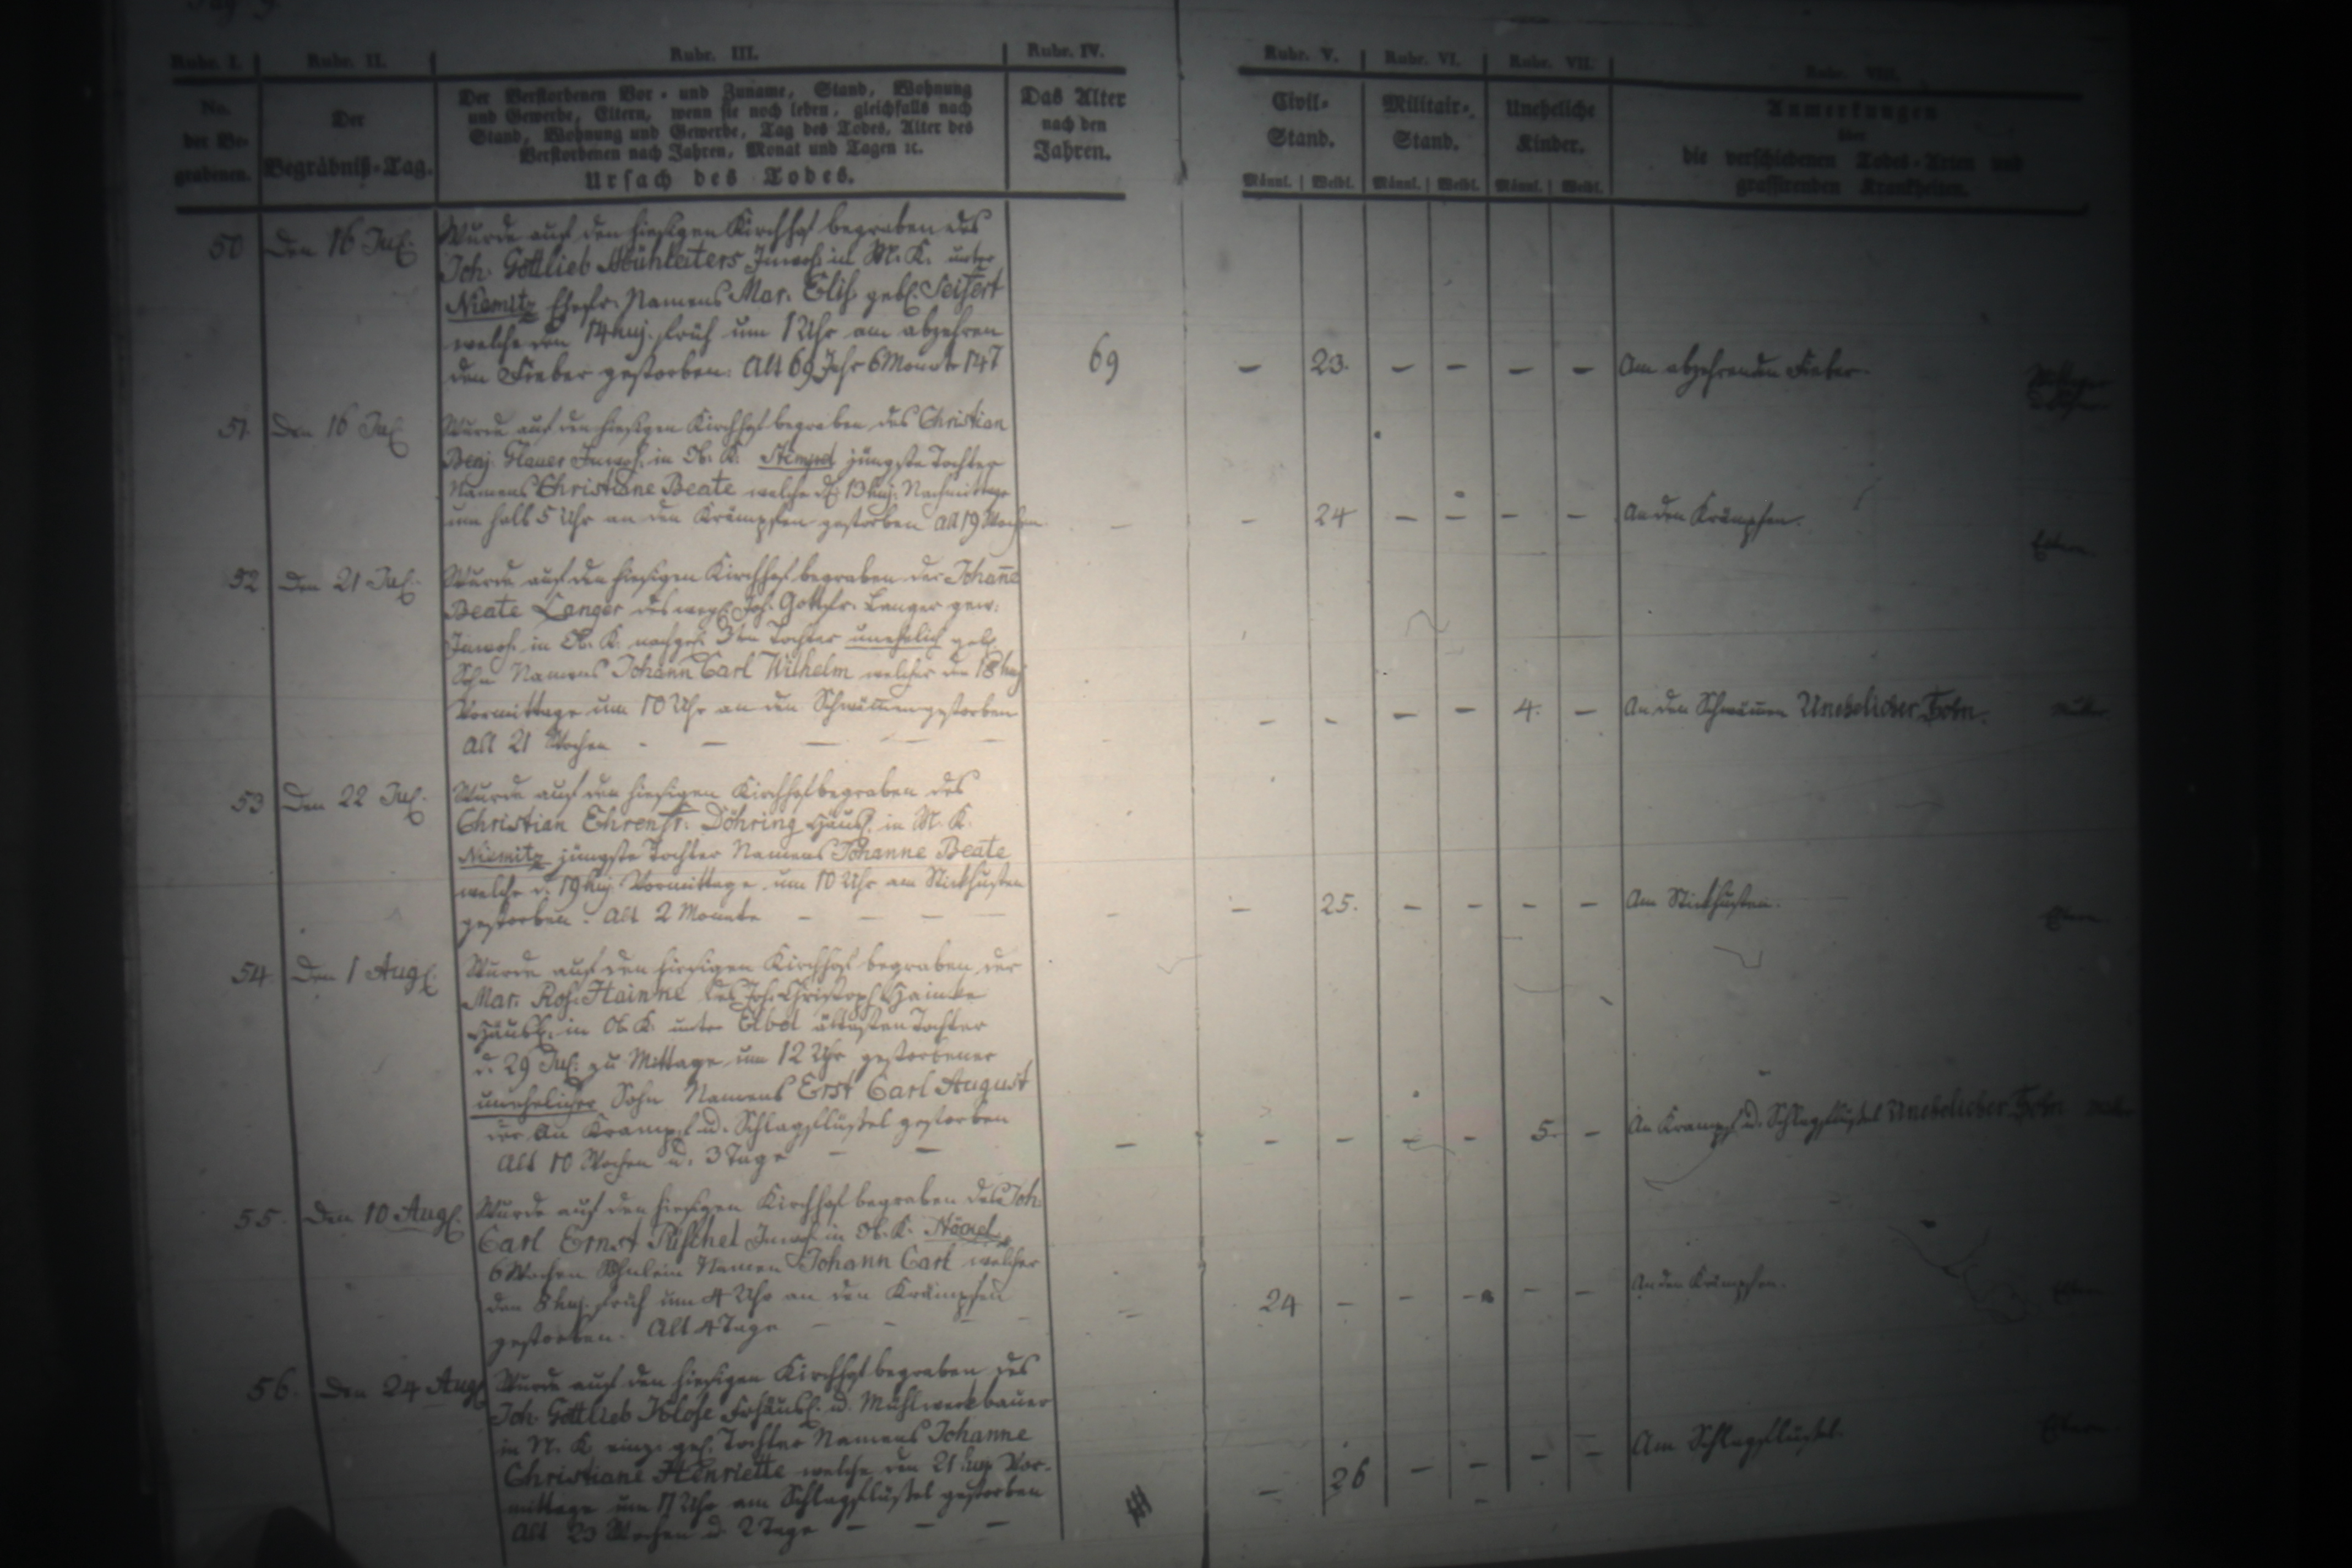 Pag 9
Rubr. I.
Rubr. II.
Rubr. III.
Rubr. IV.
Rubr. V.
Rubr. VI.
Rubr. VII.
Rubr. VIII.
No.
der Be-
grabenen.
Der
Begräbniß-Tag.
Der Verstorbenen Vor- und Zuname, Stand, Wohnung
und Gewerbe, Eltern, wenn sie noch leben, gleichfalls nach
Stand, Wohnung und Gewerbe, Tag des Todes, Alter des
Verstorbenen nach Jahren, Monat und Tagen ꝛc.
Ursach des Todes.
Das Alter
nach den
Jahren.
Civil-
Stand.
Männl. | Weibl.
Militair-
Stand.
Männl. | Weibl.
Uneheliche
Kinder.
Männl. | Weibl.
Anmerkungen
über
die verschiedenen Todes-Arten und
grassirenden Krankheiten.
50 Den 16 Jul.
Wurde auf den hiesigen Kirchhof begraben des
Joh. Gottlieb Mühleiters Inwoh. in M. K. unter
Niemitz Ehefr. Namens Mar. Elis. geb. Seifert
welche den 14 huj. früh um 1 Uhr am abzehren
den Fieber gestorben: Alt 69 Jahr 6 Monate 14 T
69 – 23. – – – – Am abzehrenden Fieber.
51. Den 16 Jul
Wurde auf den hiesigen Kirchhof begraben des Christian
Benj. Glauer Inwoh. in Ob. K. Stempel jüngste Tochter
Namens Christiane Beate welche d. 13 huj. Nachmittags
um halb 5 Uhr an den Krämpfen gestorben alt 19 Wochen
– – 24 – – – – An den Krämpfen. Eltern
52 Den 21 Jul.
Wurde auf den hiesigen Kirchhof begraben der Johane
Beate Langer des weyl. Joh. Gottfr. Langer gew.
Inwoh. in Ob. K. nachgel. 3ten Tochter unehelich geb.
Sohn Namens Johann Carl Wilhelm welcher den 18 huj
Vormittags um 10 Uhr an den Schwämmen gestorben
Alt 21 Wochen – – – – –
– – – – 4. – An den Schwämmen Unehelicher Sohn. Mutter.
53 Den 22 Jul.
Wurde auf den hiesigen Kirchhof begraben des
Christian Ehrenfr. Döhring Häusl. in M. K.
Niemitz jüngste Tochter Namens Johanne Beate
welche d. 19 huj Vormittags um 10 Uhr am Stickhusten
gestorben. Alt 2 Monate – – – –
– – 25. – – – – Am Stickhusten. Eltern
54. Den 1 Aug.
Wurde auf den hiesigen Kirchhof begraben der
Mar. Ros. Hainke des Joh. Christoph Hainke
Häusl. in Ob. K. unter Elbel ältesten Tochter
d. 29 Jul. zu Mittage um 12 Uhr gestorbener
unehelicher Sohn Namens Erst Carl August
der an Krampf u. Schlagflussel gestorben
Alt 10 Wochen u. 3 Tage – –
– – – – – 5. – An Krampf u. Schlagflussel Unehelicher Sohn
55. Den 10 Aug.
Wurde auf den hiesigen Kirchhof begraben des Joh.
Carl Ernst Püschel Inwoh in Ob. K.
6 Wochen Söhnlein Namen Johann Carl welcher
den 8 huj. früh um 4 Uhr an den Krämpfen
gestorben. Alt 4 Tage – – – –
– 24 – – – – – An den Krämpfen.
56. Den 24 Aug
Wurde auf den hiesigen Kirchhof begraben des
Joh. Gottlieb Klose Frhäusl. u. Mühlwerkbauer
in N. K. einz. gel. Tochter Namens Johanne
Christiane Henriette welche den 21 huj. Vor-
mittags um 11 Uhr am Schlagflussel gestorben
Alt 23 Wochen u. 2 Tage – – –
– 26 – – – – Am Schlagflussel. Eltern.